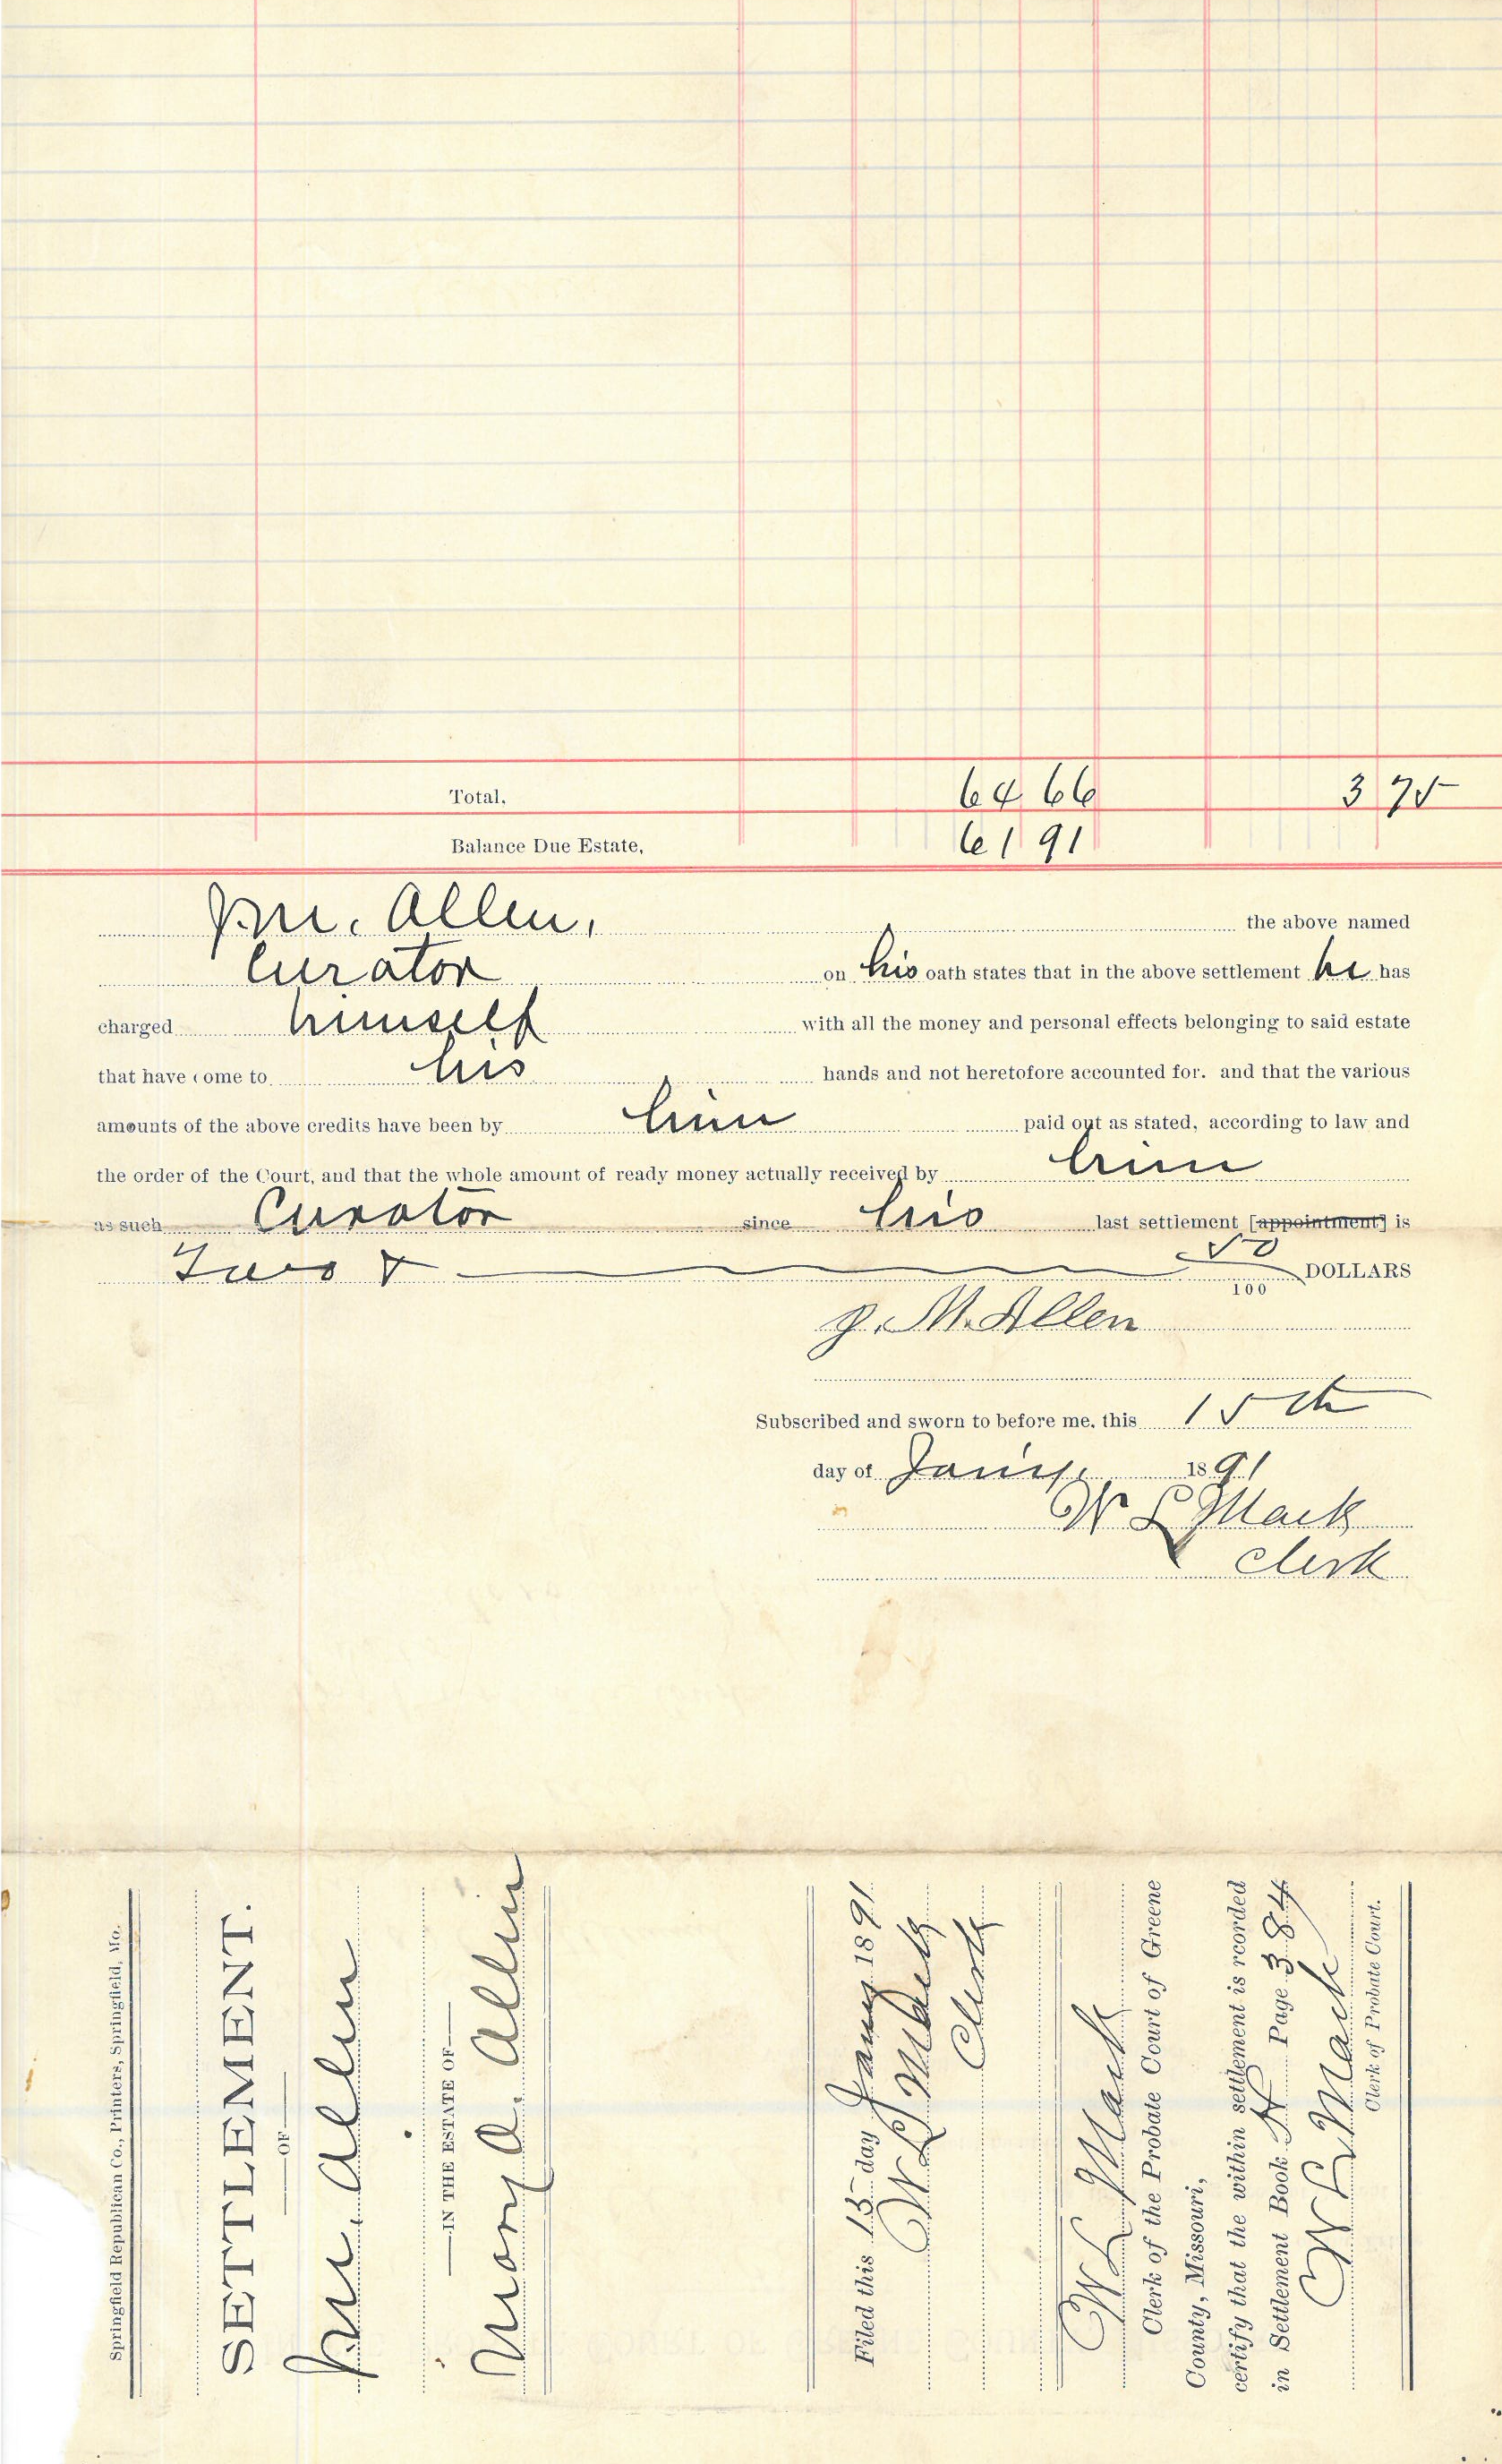 Total, 64 66 3 75
Balance Due Estate, 61 91
J.M. Allen, the above named
Curator on his oath states that in the above settlement he has
charged himself with all the money and personal effects belonging to said estate
that have come to his hands and not heretofore accounted for. and that the various
amounts of the above credits have been by him paid out as stated, according to law and
the order of the Court, and that the whole amount of ready money actually received by him
as such Curator since his last settlement [appointment] is
Two & 50/100 DOLLARS
J. M. Allen
Subscribed and sworn to before me, this 15th
day of Jany. 1891
W L Mack
Clerk
Springfield Republican Co., Printers, Springfield, Mo.
SETTLEMENT.
—OF—
J.M. Allen
—IN THE ESTATE OF—
Mary A. Allen
Filed this 15 day Jany 1891
W L Mack
Clerk
W L Mack
Clerk of the Probate Court of Greene
County, Missouri,
certify that the within settlement is rcorded
in Settlement Book H Page 384
W L Mack
Clerk of Probate Court.